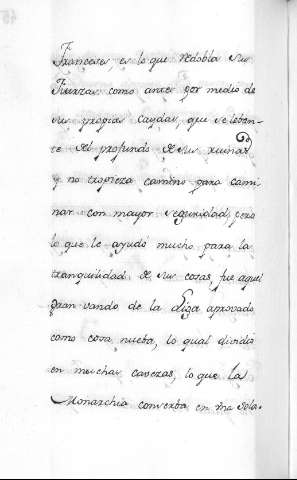 Franceses, es lo que redobla sus
Fuerzas como antes por medio de
sus propias caydas, que se leban-
te del profundo de sus ruinas
y no tropieza camino para cami-
nar con mayor seguridad, pero
lo que le ayudó mucho para la
tranquilidad de sus cosas, fue aquel
gran vando de la Liga aprovado
como cosa nueba, lo qual dividio
en muchas cavezas, lo que la
Monarchia conserba en una sola.